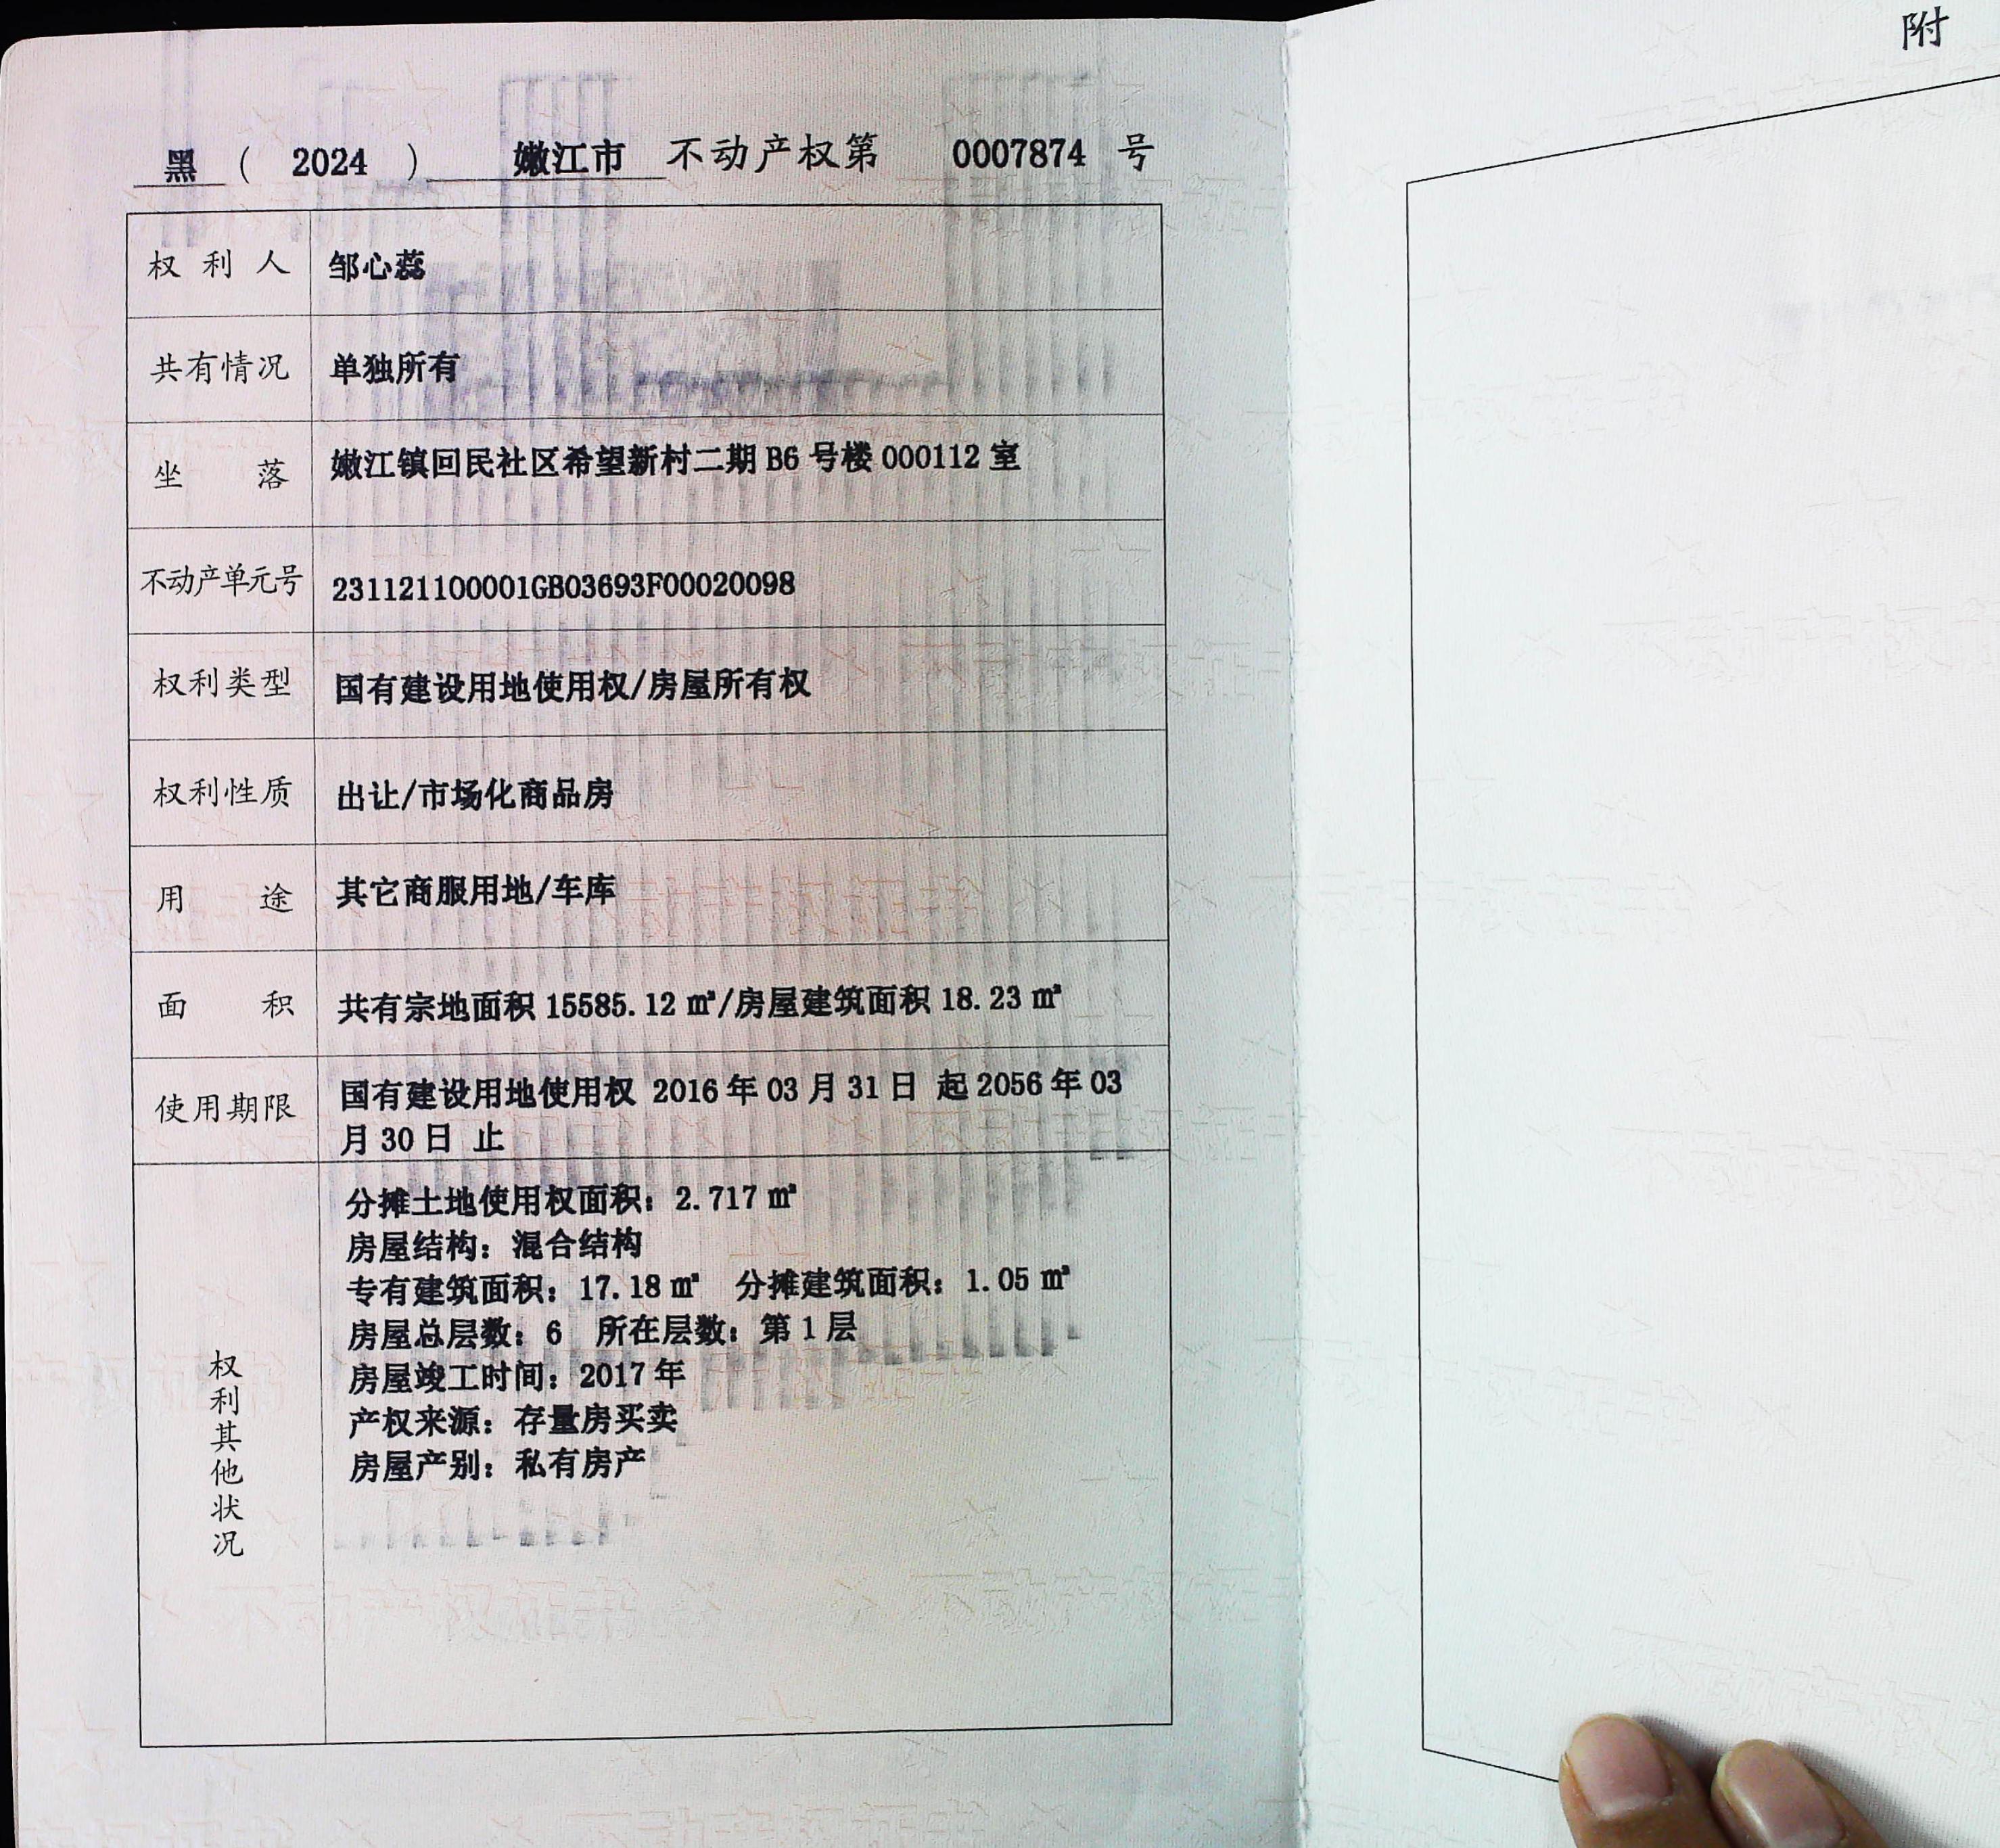 黑 ( 2024 ) 嫩江市 不动产权第 0007874 号
附
权利人 邹心蕊
共有情况 单独所有
坐落 嫩江镇回民社区希望新村二期 B6 号楼 000112 室
不动产单元号 231121100001GB03693F00020098
权利类型 国有建设用地使用权/房屋所有权
权利性质 出让/市场化商品房
用途 其它商服用地/车库
面积 共有宗地面积 15585.12 ㎡/房屋建筑面积 18.23 ㎡
使用期限 国有建设用地使用权 2016 年 03 月 31 日 起 2056 年 03
月 30 日 止
权利其他状况
分摊土地使用权面积：2.717 ㎡
房屋结构：混合结构
专有建筑面积：17.18 ㎡ 分摊建筑面积：1.05 ㎡
房屋总层数：6 所在层数：第 1 层
房屋竣工时间：2017 年
产权来源：存量房买卖
房屋产别：私有房产